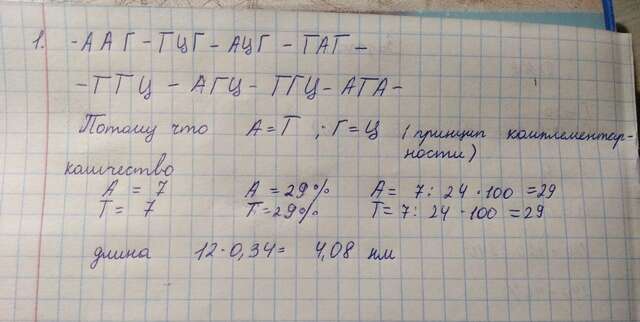 1. -ААГ-ТЦГ-АЦГ-ТАГ-
-ТТЦ-АГЦ-ТГЦ-АТА-
Потому что А=Т ; Г=Ц (принцип комплементар-
ности)
количество
А = 7 А = 29% А = 7 : 24 · 100 = 29
Т = 7 Т = 29% Т = 7 : 24 · 100 = 29
длина 12 · 0,34 = 4,08 нм